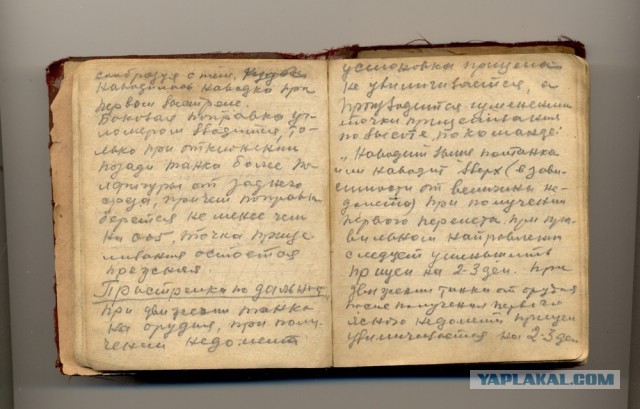 сообразуя с тем, куда
наводилась наводка при
первом выстреле.
Боковая поправка уг-
ломером вводится, то-
лько при отклонении
позади танка более по-
лфигуры от заднего
среза, причем поправка
берется не менее чем
на 0.05, точка прице
ливания остается
прежняя.
Пристрелка по дальнос
При движении танка
на орудия, при полу-
чении недолета
установка прицела
не увеличивается, а
производится изменением
точки прицеливания
по высоте, по команде:
"Наводить выше полтанка
или наводить вверх (в зави-
симости от величины не-
долета) При получении
первого перелета при пра-
вильном направлении
следует уменьшить
прицел на 2-3 дел. При
движении танка от орудия
после получения первого
ясного недолета прицел
увеличивается на 2-3 дел
YAPLAKAL.COM